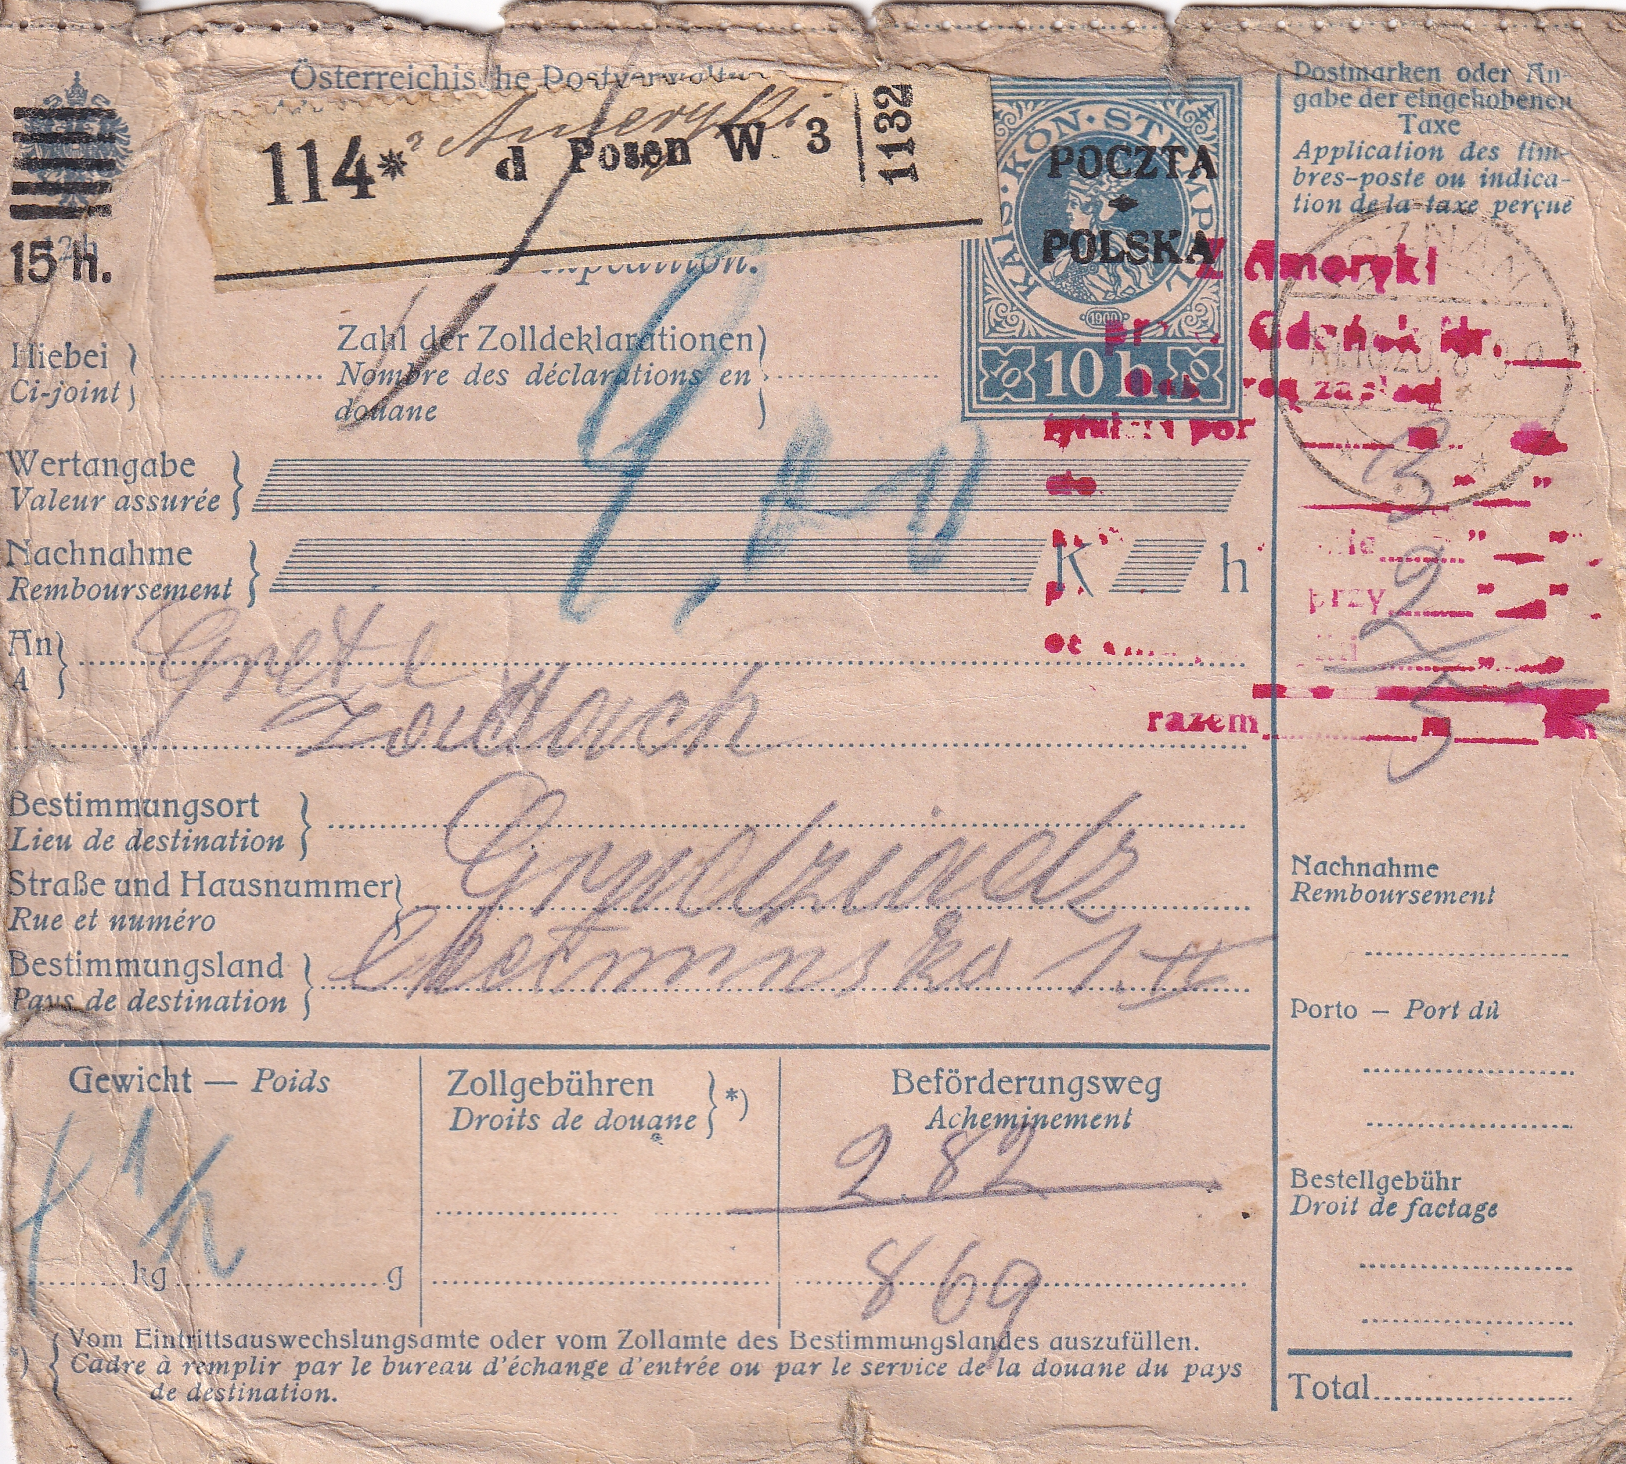 Österreichische Postverwaltu
114* d Posen W. 3 1132
z Ameryki
KAIS·KÖN·STEMPEL
POCZTA
POLSKA
1900
10 h
15 h.
expedition.
Postmarken oder An-
gabe der eingehobenen
Taxe
Application des tim-
bres-poste ou indica-
tion de la taxe perçue
POZNAŃ
Z Ameryki
Gdańsk Nr.
Hiebei
Ci-joint
Zahl der Zolldeklarationen
Nombre des déclarations en
douane
Wertangabe
Valeur assurée
3
Nachnahme
Remboursement
K h
przy
2
An
A
Grete
Zollach
razem
5
Bestimmungsort
Lieu de destination
Grudziadz
Straße und Hausnummer
Rue et numéro
Chełminska 1.II
Bestimmungsland
Pays de destination
Nachnahme
Remboursement
Porto — Port dû
Gewicht — Poids
kg g
Zollgebühren
Droits de douane *)
Beförderungsweg
Acheminement
282
869
Bestellgebühr
Droit de factage
*) Vom Eintrittsauswechslungsamte oder vom Zollamte des Bestimmungslandes auszufüllen.
Cadre à remplir par le bureau d'échange d'entrée ou par le service de la douane du pays
de destination.
Total